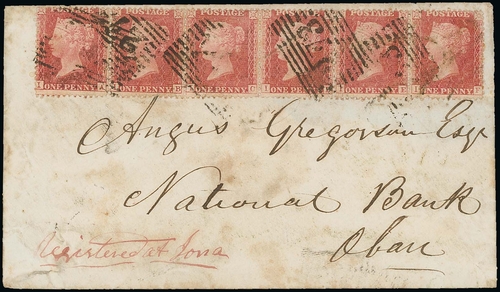 POSTAGE POSTAGE POSTAGE POSTAGE POSTAGE POSTAGE
ONE PENNY ONE PENNY ONE PENNY ONE PENNY ONE PENNY ONE PENNY
Angus Gregorson Esqr
National Bank
Oban
Registered at Iona